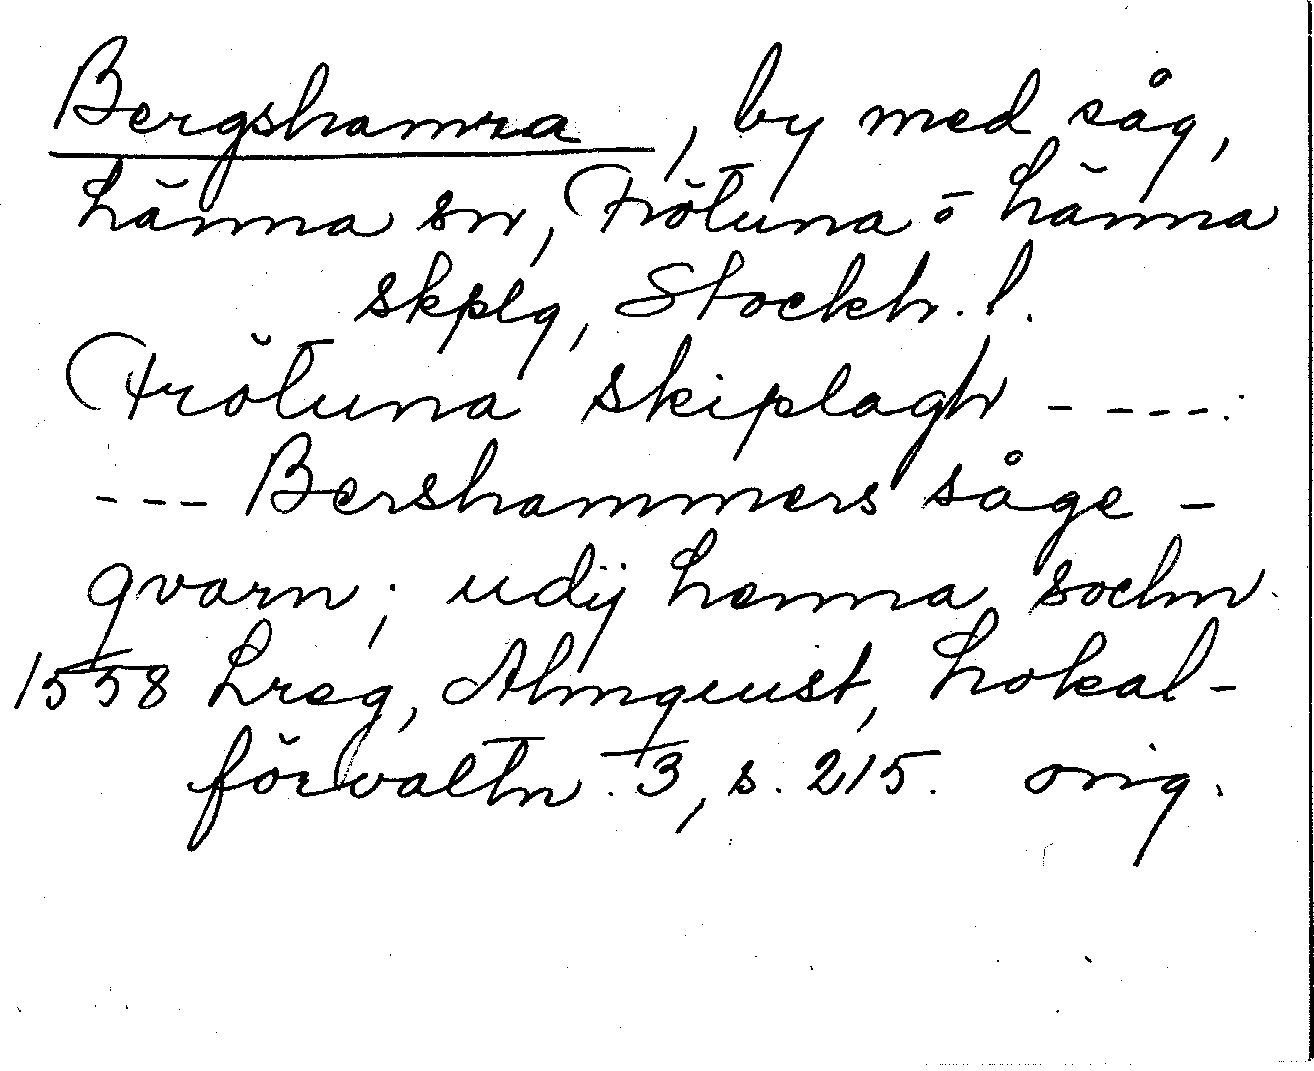 Bergshamra, by med såg,
Länna sn, Frötuna o Länna
skplg, Stockh. l.
Frötuna skiplagh - - - - .
- - - Bershammers såge-
qvarn; udij Lenna sochn
1558 Lreg, Almquist, Lokal-
förvaltn. 3, s. 215. orig.